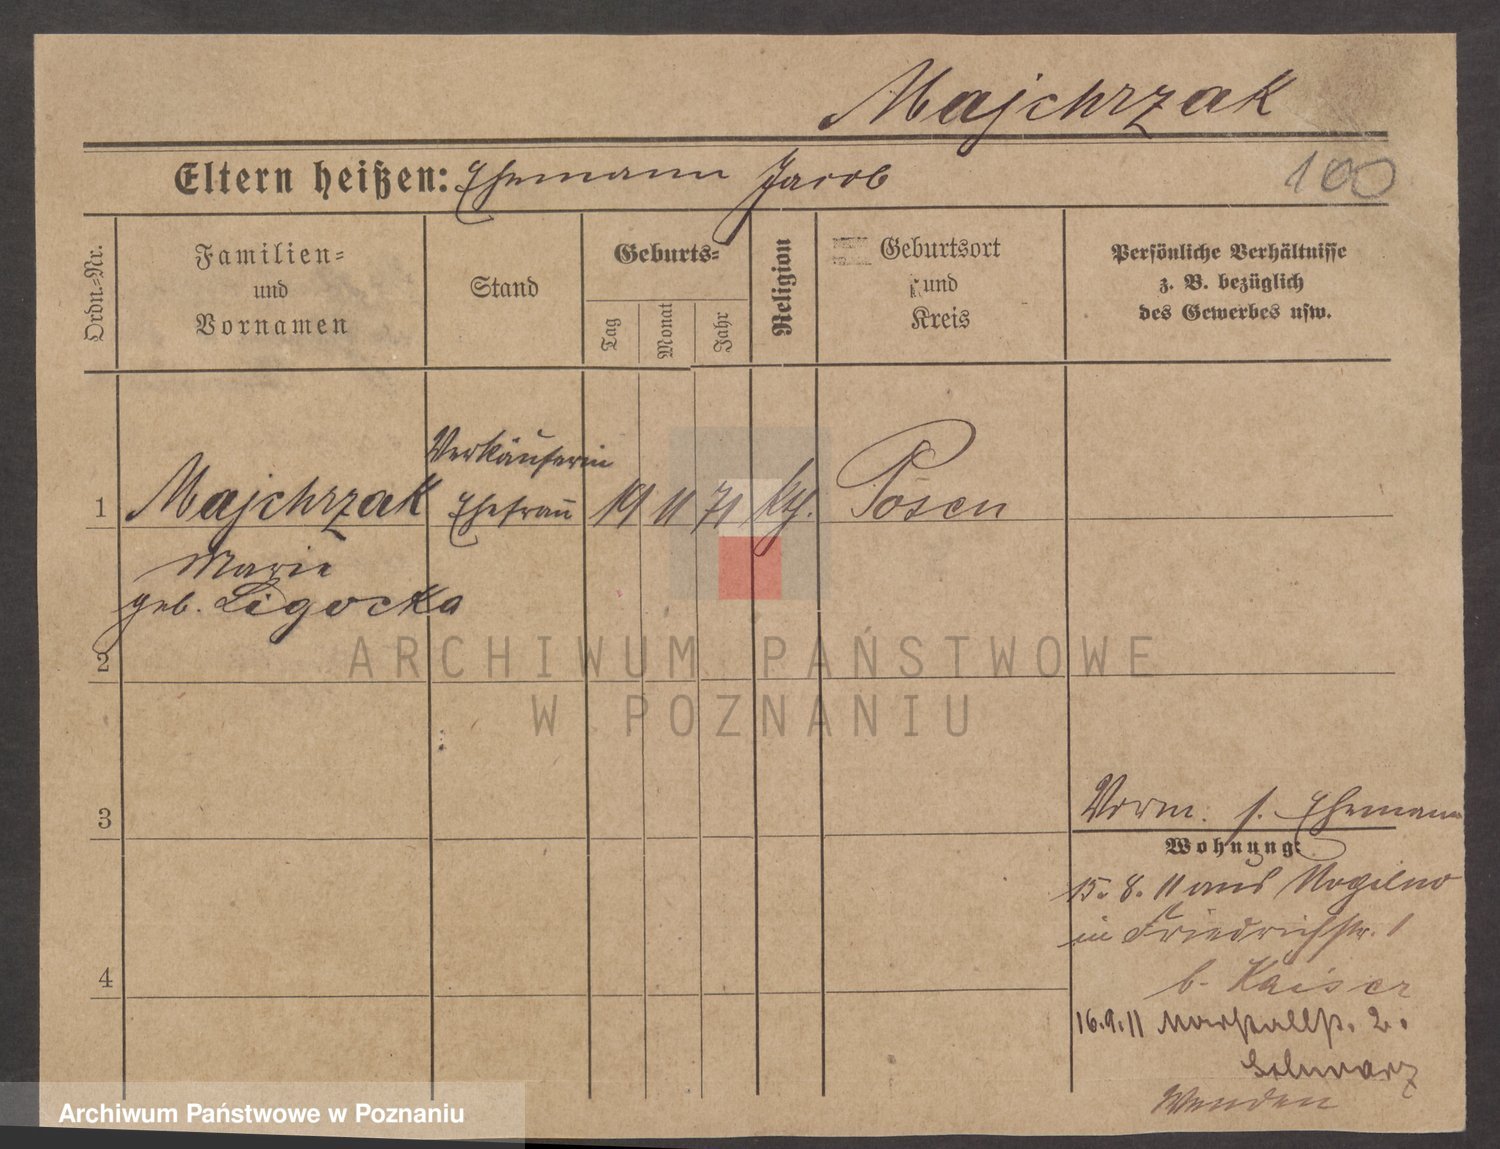 Majchrzak
Eltern heißen: Ehemann Jacob
100
Ordn.-Nr.
Familien-
und
Vornamen
Stand
Geburts-
Tag
Monat
Jahr
Religion
Geburtsort
und
Kreis
Persönliche Verhältnisse
z. B. bezüglich
des Gewerbes usw.
Verkäuferin
1 Majchrzak Ehefrau 19 11 71 kth. Posen
Marie
geb. Ligocka
2
ARCHIWUM PAŃSTWOWE
W POZNANIU
3
Verm. s. Ehemann
Wohnung:
15. 8. 11 aus Mogilno
in Friedrichstr. 1
b. Kaiser
4
16.9.11 Marstallstr. 2.
Schwarz
Archiwum Państwowe w Poznaniu